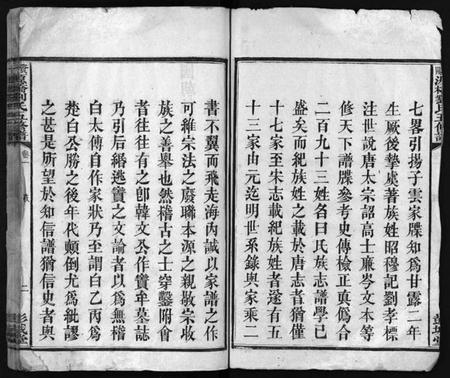 七畧引揚子雲家牒知爲甘露二年
生厥後摯虞著族姓昭穆記劉孝標
注世說唐太宗詔高士廉岑文本等
修天下譜牒參考史傳檢正眞僞合
二百九十三姓名曰氏族志譜學已
盛矣而紀族姓之載於唐志者猶僅
十七家至宋志載紀族姓者遂有五
十三家由元迄明世系錄與家乘二
書不翼而飛走海內誠以家譜之作
可維宗法之廢聯本源之親敬宗收
族之善舉也然稽古之士穿鑿附會
者往往有之卽韓文公作竇牟墓誌
乃引后緡逃竇之文論者以爲無稽
白太傅自作家狀乃至謂白乙丙爲
楚白公勝之後年代顚倒尤爲紕謬
之甚是所望於知信譜猶信史者與
卷
二
彭城堂
彭城堂